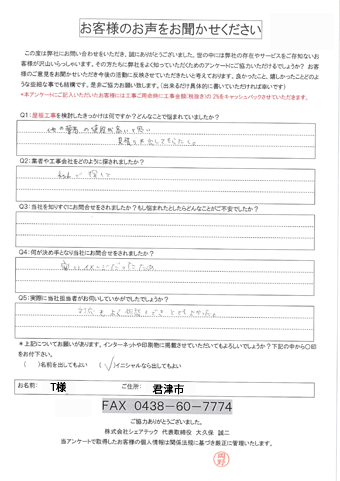 お客様のお声をお聞かせください
この度は弊社にお問い合わせをいただき、誠にありがとうございました。世の中には弊社の存在やサービスをご存知ないお
客様が沢山いらっしゃいます。その方たちに弊社をよく知っていただくためのアンケートにご協力いただけるでしょうか? お客
様のご意見をお聞かせいただき今後の活動に反映させていきたいと考えております。良かったこと、嬉しかったことどのよ
うな些細な事でも結構です。是非ご協力お願い致します。(出来るだけ具体的に書いていただければ幸いです)
*本アンケートにご記入いただいたお客様には工事ご用命時に工事金額(税抜き)の 2%をキャッシュバックさせていただきます。
Q1:屋根工事を検討したきっかけは何ですか?どんなことで悩まれていましたか?
他の業者の値段が高いと思い
見積りを出してもらった。
Q2:業者や工事会社をどのように探されましたか?
webで探して
Q3:当社を知りすぐにお問合せをされましたか?もし悩まれたとしたらどんなことがご不安でしたか?
Q4:何が決め手となり当社にお問合せをされましたか?
イメージだったため
Q5:実際に当社担当者がお伺いしていかがでしたでしょうか?
対応もよく
よかった。
*上記についてお願いがあります。インターネットや印刷物に掲載させていただいてもよろしいでしょうか?下記の中から○印
をお付下さい。
( )名前を出してもよい (✓)イニシャルなら出してもよい
お名前: T様 ご住所: 君津市
FAX 0438-60-7774
ご協力ありがとうございました。
株式会社シェアテック 代表取締役 大久保 誠二
当アンケートで取得したお客様の個人情報は関係法規に基づき厳正に管理いたします。